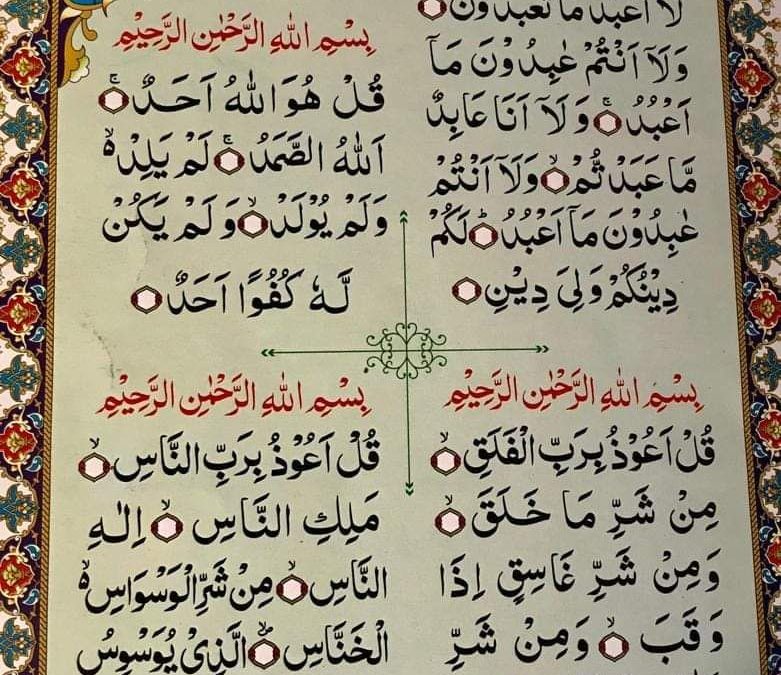 لَآ اَعْبُدُ مَا تَعْبُدُوْنَ
وَلَآ اَنْتُمْ عٰبِدُوْنَ مَآ
اَعْبُدُ ۚ وَلَآ اَنَا عَابِدٌ
مَّا عَبَدْتُّمْ ۙ وَلَآ اَنْتُمْ
عٰبِدُوْنَ مَآ اَعْبُدُ ؕ لَكُمْ
دِيْنُكُمْ وَلِيَ دِيْنِ
بِسْمِ اللهِ الرَّحْمٰنِ الرَّحِيْمِ
قُلْ هُوَ اللهُ اَحَدٌ ۚ
اَللهُ الصَّمَدُ ۚ لَمْ يَلِدْ ۙ
وَلَمْ يُوْلَدْ ۙ وَلَمْ يَكُنْ
لَّهٗ كُفُوًا اَحَدٌ
بِسْمِ اللهِ الرَّحْمٰنِ الرَّحِيْمِ
قُلْ اَعُوْذُ بِرَبِّ الْفَلَقِ ۙ
مِنْ شَرِّ مَا خَلَقَ ۙ
وَمِنْ شَرِّ غَاسِقٍ اِذَا
وَقَبَ ۙ وَمِنْ شَرِّ
بِسْمِ اللهِ الرَّحْمٰنِ الرَّحِيْمِ
قُلْ اَعُوْذُ بِرَبِّ النَّاسِ ۙ
مَلِكِ النَّاسِ ۙ اِلٰهِ
النَّاسِ ۙ مِنْ شَرِّ الْوَسْوَاسِ ۙ
الْخَنَّاسِ ۙ الَّذِيْ يُوَسْوِسُ